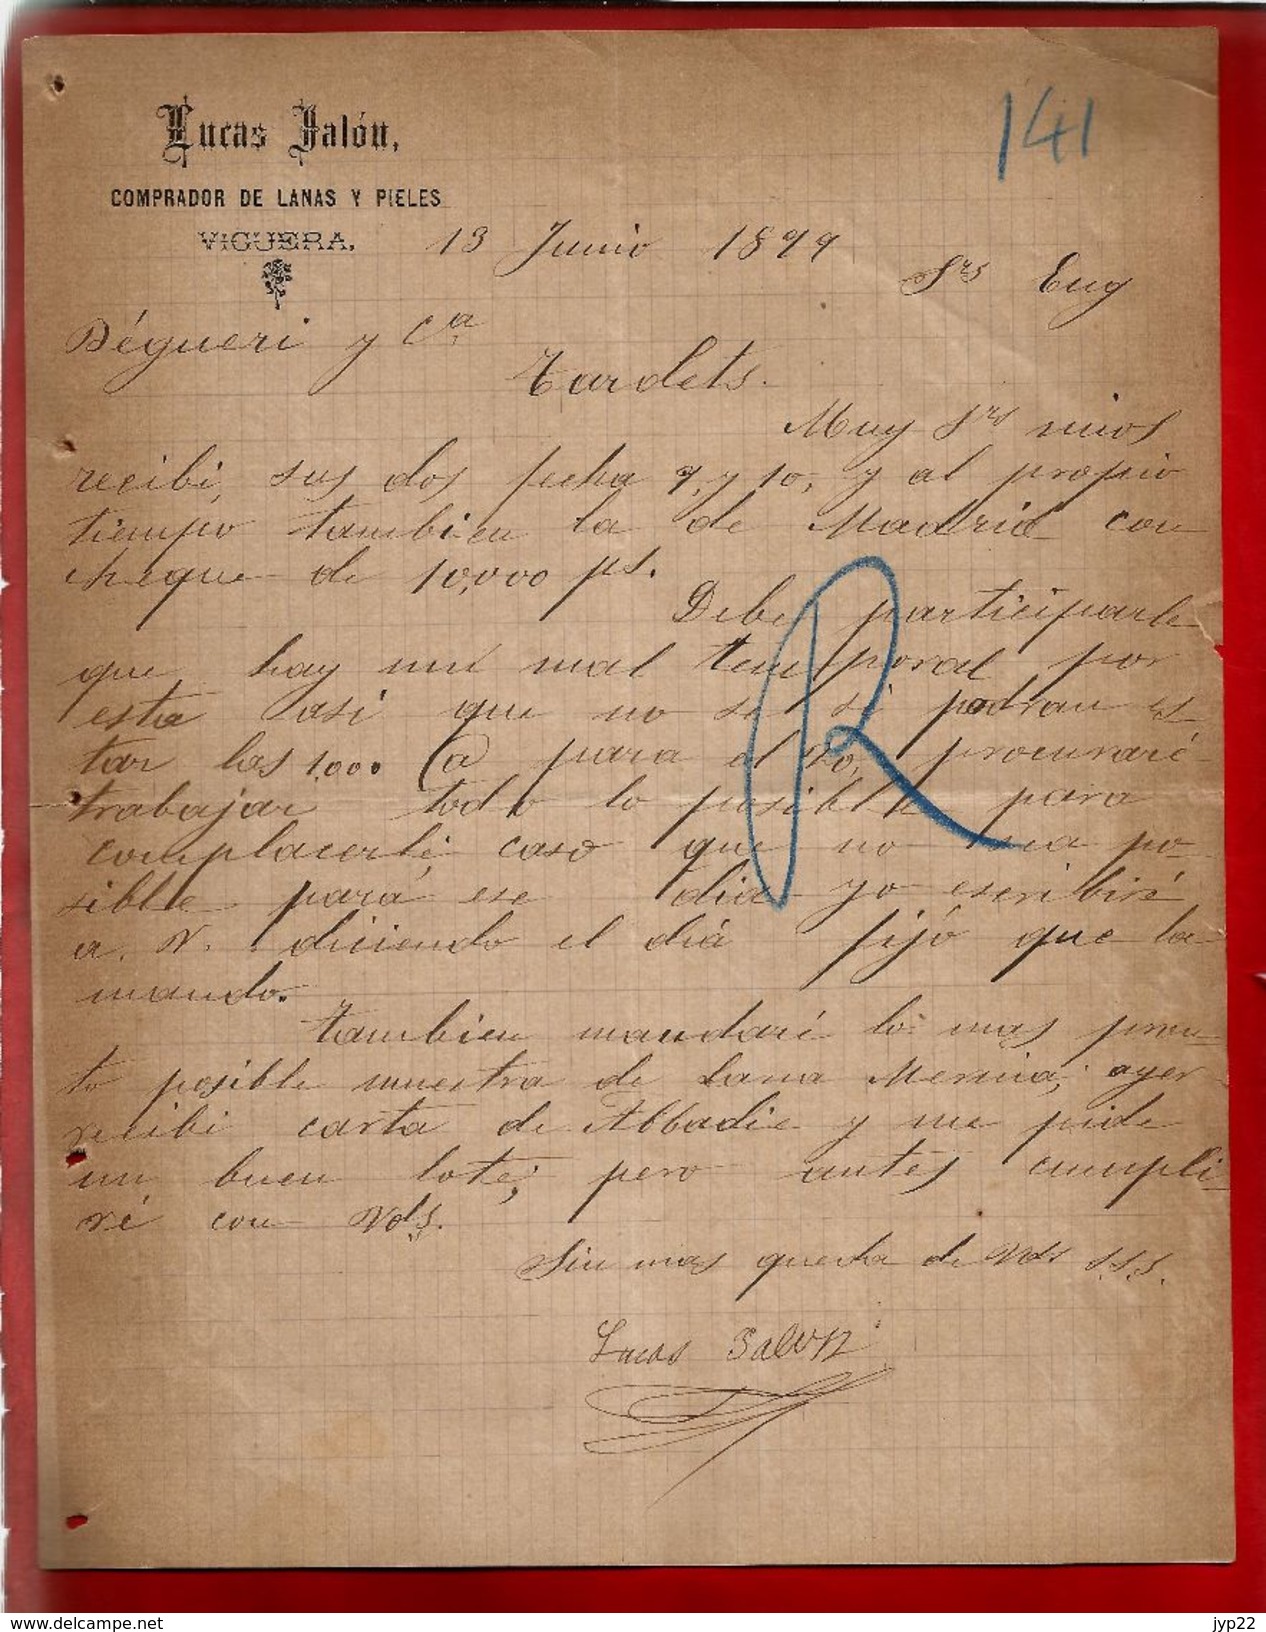 Lucas Jalón,
141
COMPRADOR DE LANAS Y PIELES
VIGUERA.
13 Junio 1899
Srs Eug
Bégueri y Cª
Tardets.
Muy Srs mios
recibi, sus dos fecha 9, y 10, y al propio
tiempo tambien la de Madrid con
cheque de 10,000 ps.
Debo participarle
que hay mui mal temporal por
esta asi que no se si podran es-
tar las 1,000 @ para el 20, procuraré
trabajar todo lo posible para
complacerle; caso que no sea po-
sible para ese dia yo escribiré
a. V. diciendo el dia fijó que la
mando.
Tambien mandaré lo mas pron-
to posible muestra de Lana Merina; ayer
recibi carta de Abbadie y me pide
un buen lote; pero antes cumpli-
ré con Vds.
Sin mas queda de Vds s.s.s.
Lucas Jalon
R
delcampe.net
jyp22